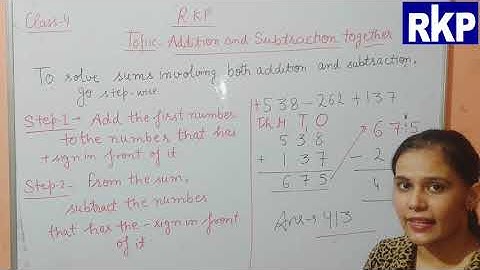 Class-4
RKP
RKP
Topic- Addition and Subtraction together
To solve sums involving both addition and subtraction,
go step-wise
Step-1- Add the first number
to the number that has
+ sign in front of it
Step-2- From the sum,
subtract the number
that has the - sign in front
of it
+538-262+137
Th H T O
5 3 8
+ 1 3 7
6 7 5
6 7 5
- 2
4
Ans→ 413